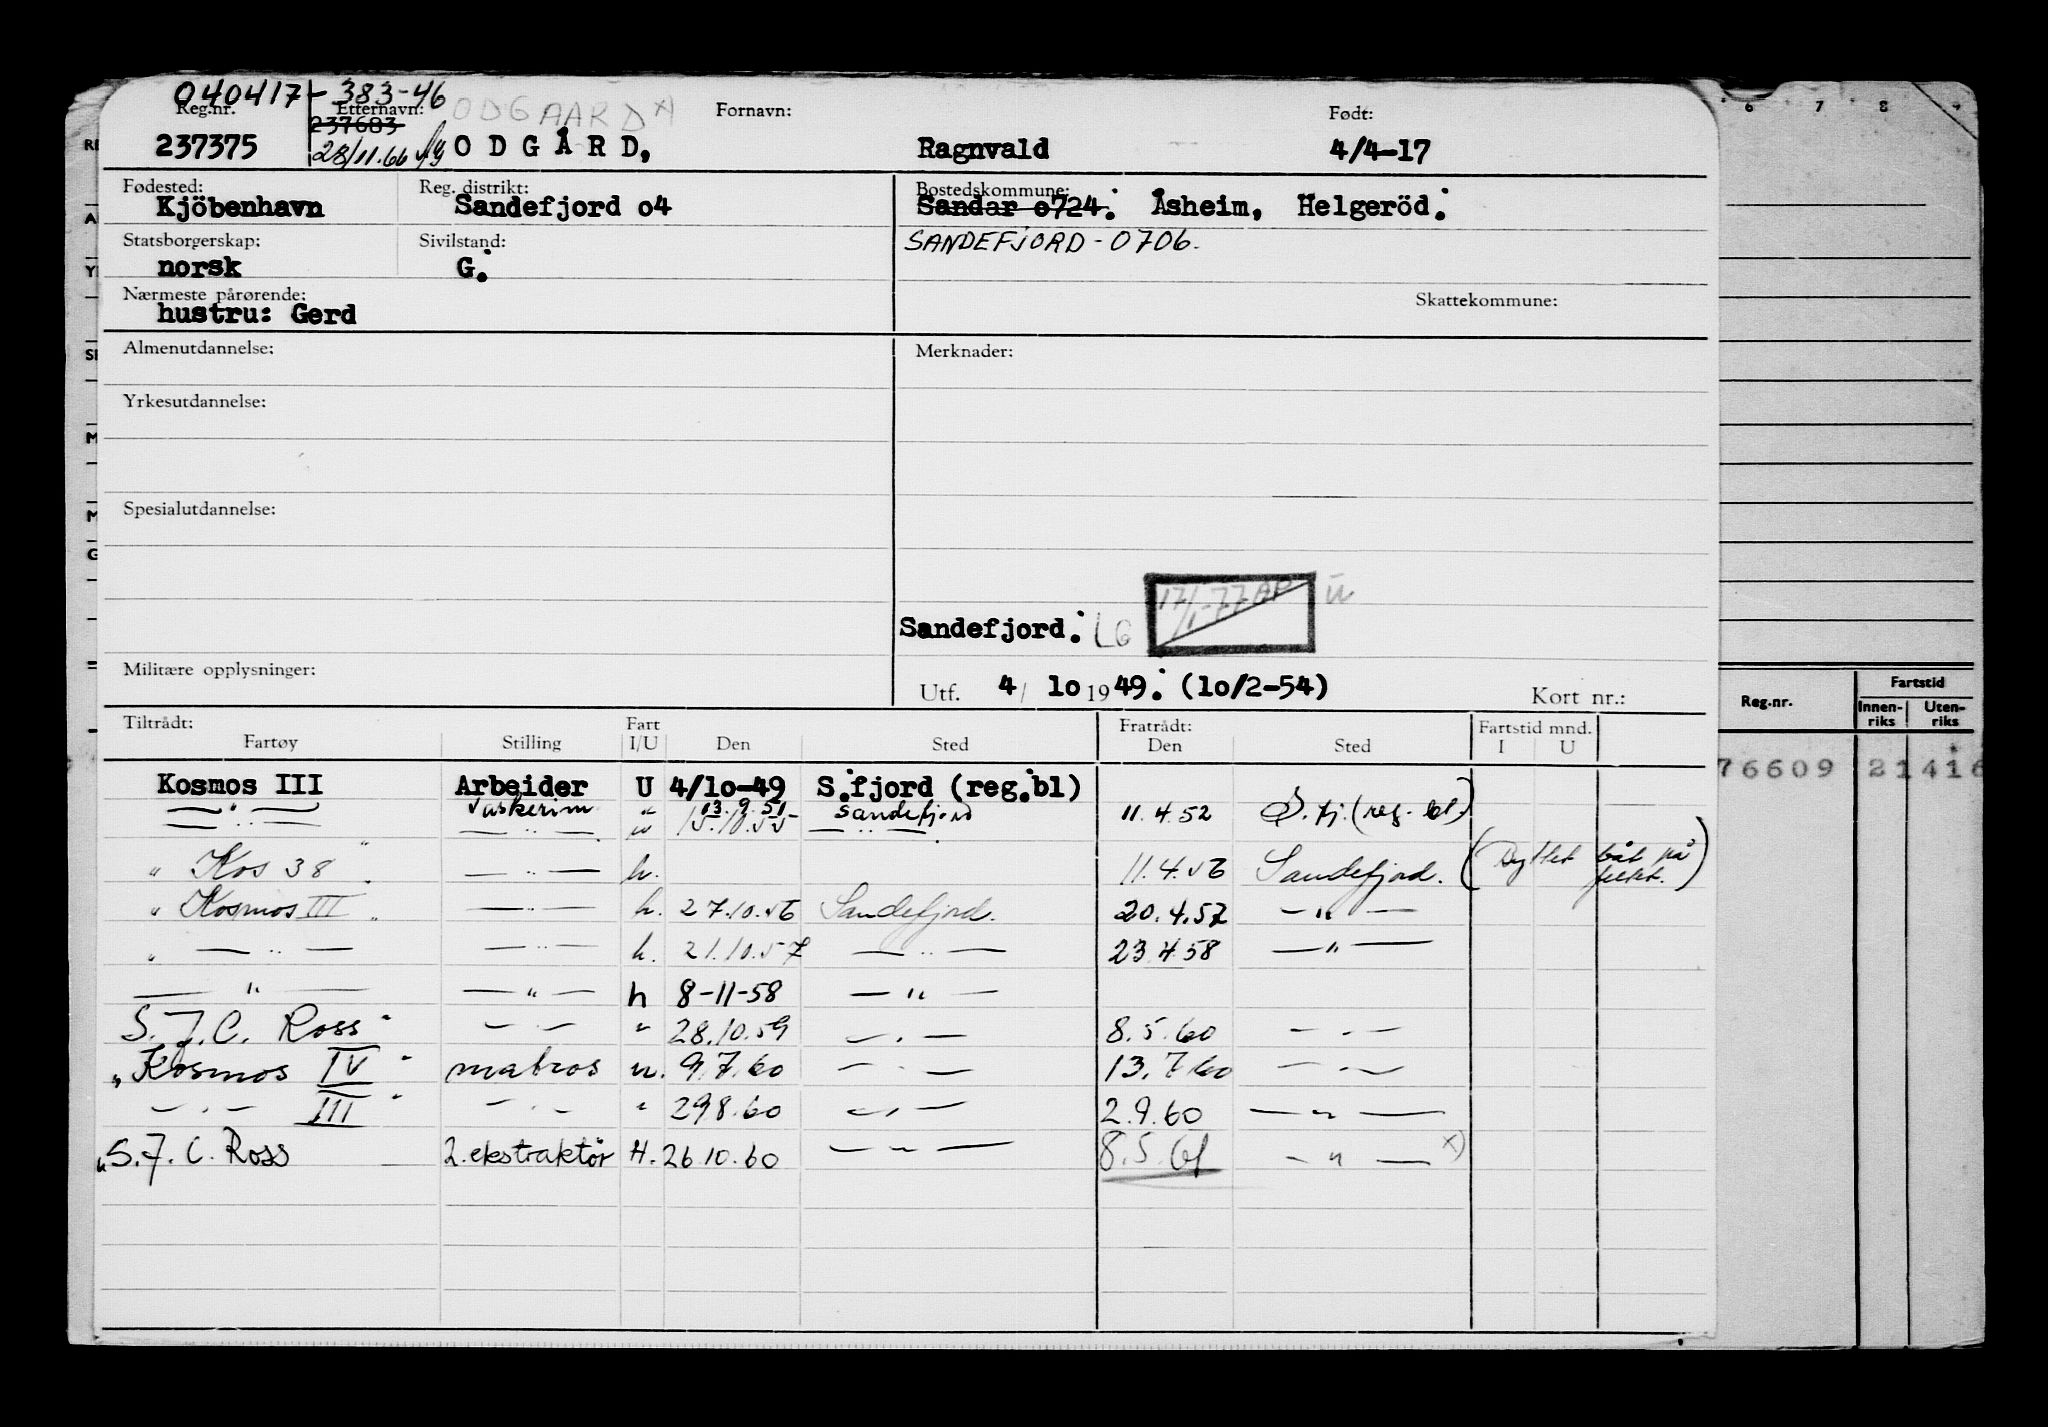 040417-383-46
Reg.nr. Etternavn: ODGAARD x) Fornavn: Født:
237683
237375 28/11.66 ODGÅRD, Ragnvald 4/4-17
Fødested: Reg. distrikt: Bostedskommune:
Kjöbenhavn Sandefjord o4 Sandar o724. Åsheim, Helgeröd.
Statsborgerskap: Sivilstand: SANDEFJORD-0706.
norsk G.
Nærmeste pårørende: Skattekommune:
hustru: Gerd
Almenutdannelse: Merknader:
Yrkesutdannelse:
Spesialutdannelse:
17/1-77 AP
Sandefjord. LG
Militære opplysninger:
Utf. 4/ 1o 1949. (1o/2-54) Kort nr.:
Tiltrådt: Fart Fratrådt: Fartstid mnd.
Fartøy Stilling I/U Den Sted Den Sted I U
Kosmos III Arbeider U 4/1o-49 S.fjord (reg.bl)
— " — Vaskerim " 13.9.51 Sandefjord 11.4.52 S.fj. (reg. bl.)
— " — — " — " 15.10.55 — " —
" Kos 38 " — " — h. 11.4.56 Sandefjord. (Byttet båt på feltet.)
" Kosmos III " — " — h. 27.10.56 Sandefjord. 20.4.57 — " —
" — " — — " — h. 21.10.57 — " — 23.4.58 — " —
— " — — " — h 8-11-58 — " —
S.J.C. Ross " — " — " 28.10.59 — " — 8.5.60 — " —
" Kosmos IV " matros u. 9.7.60 — " — 13.7.60 — " —
— " — III " — " — " 29.8.60 — " — 2.9.60 — " —
" S.J.C. Ross 2. ekstraktör H. 26.10.60 — " — 8.5.61 — " — x)
6 7 8 9
Reg.nr. Fartstid
Innen-riks Uten-riks
76609 21416